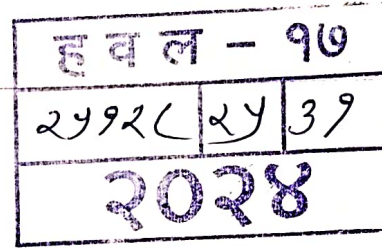 हवल - १७
२५१२८ २५ ३१
२०२४